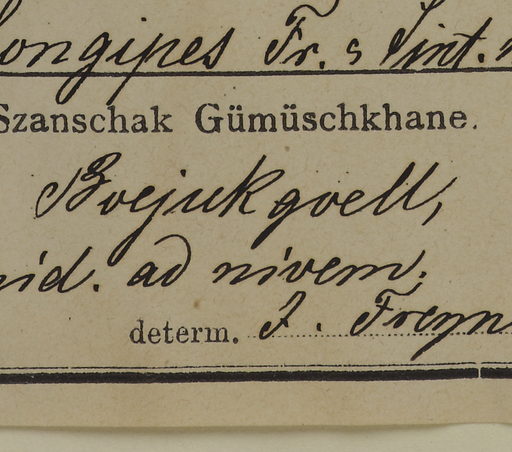 longipes Fr. s Sint.
Szanschak Gümüschkhane.
Boejukgoell,
nid. ad nivem.
determ. J. Freyn